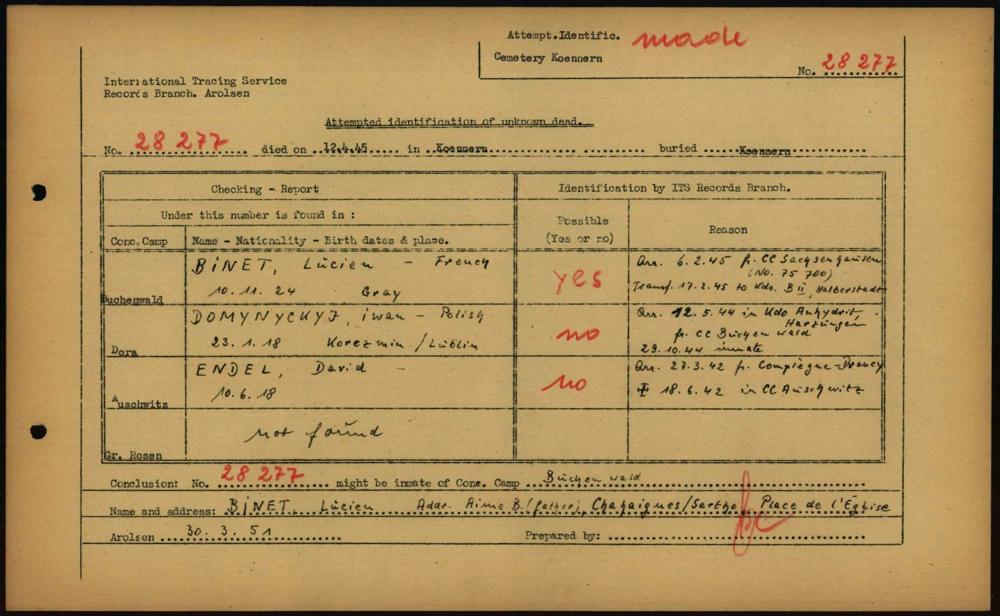 Attempt.Identific. made
Cemetery Koennern
No. 28 277
International Tracing Service
Records Branch. Arolsen
Attempted identification of unknown dead.
No. 28 277 died on 12.4.45 in Koennern buried Koennern
Checking - Report
Identification by ITS Records Branch.
Under this number is found in :
Possible (Yes or no)
Reason
Conc.Camp
Name - Nationality - Birth dates & place.
Buchenwald
BINET, Lücien - French
10.11.24 Gray
yes
Arr. 6.2.45 fr. CC Sachsenhausen
(No. 75 700)
Transf. 17.2.45 to Kdo. B II, Halberstadt
Dora
DOMYNYCKYJ, iwan - Polish
23.1.18 Korezmin / Lüblin
no
Arr. 12.5.44 in Kdo Anhydrit,
Harzüngen
fr. CC Büchenwald
29.10.44 inmate
Auschwitz
ENDEL, David -
10.6.18
no
Arr. 27.3.42 fr. Compiègne-Drancy
18.6.42 in CC Aüschwitz
Gr. Rosen
not found
Conclusion: No. 28 277 might be inmate of Conc. Camp Büchenwald
Name and address: BINET Lücien Addr. Aime B. (father), Chahaignes/Sarthe Place de l'Eglise
Arolsen 30.3.51 Prepared by: